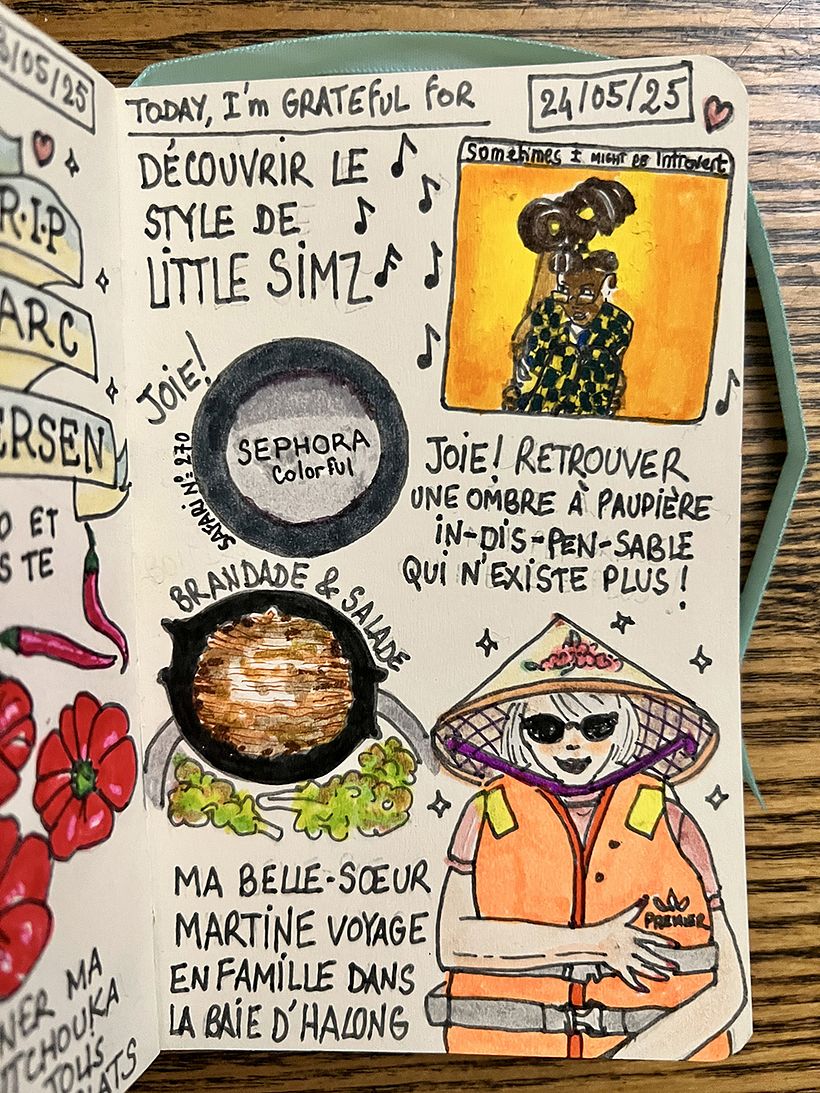 3/05/25
R.I.P
ARC
ERSEN
O ET
S TE
NER MA
TCHOUKA
TOUS
ATS
TODAY, I'm GRATEFUL FOR
24/05/25
DÉCOUVRIR LE
STYLE DE
LITTLE SIMZ
Sometimes I MIGHT BE Introvert
JOIE!
SEPHORA
Colorful
SAFARI N° 270
JOIE! RETROUVER
UNE OMBRE À PAUPIÈRE
IN-DIS-PEN-SABLE
QUI N'EXISTE PLUS!
BRANDADE & SALADE
MA BELLE-SŒUR
MARTINE VOYAGE
EN FAMILLE DANS
LA BAIE D'HALONG
PREMIER